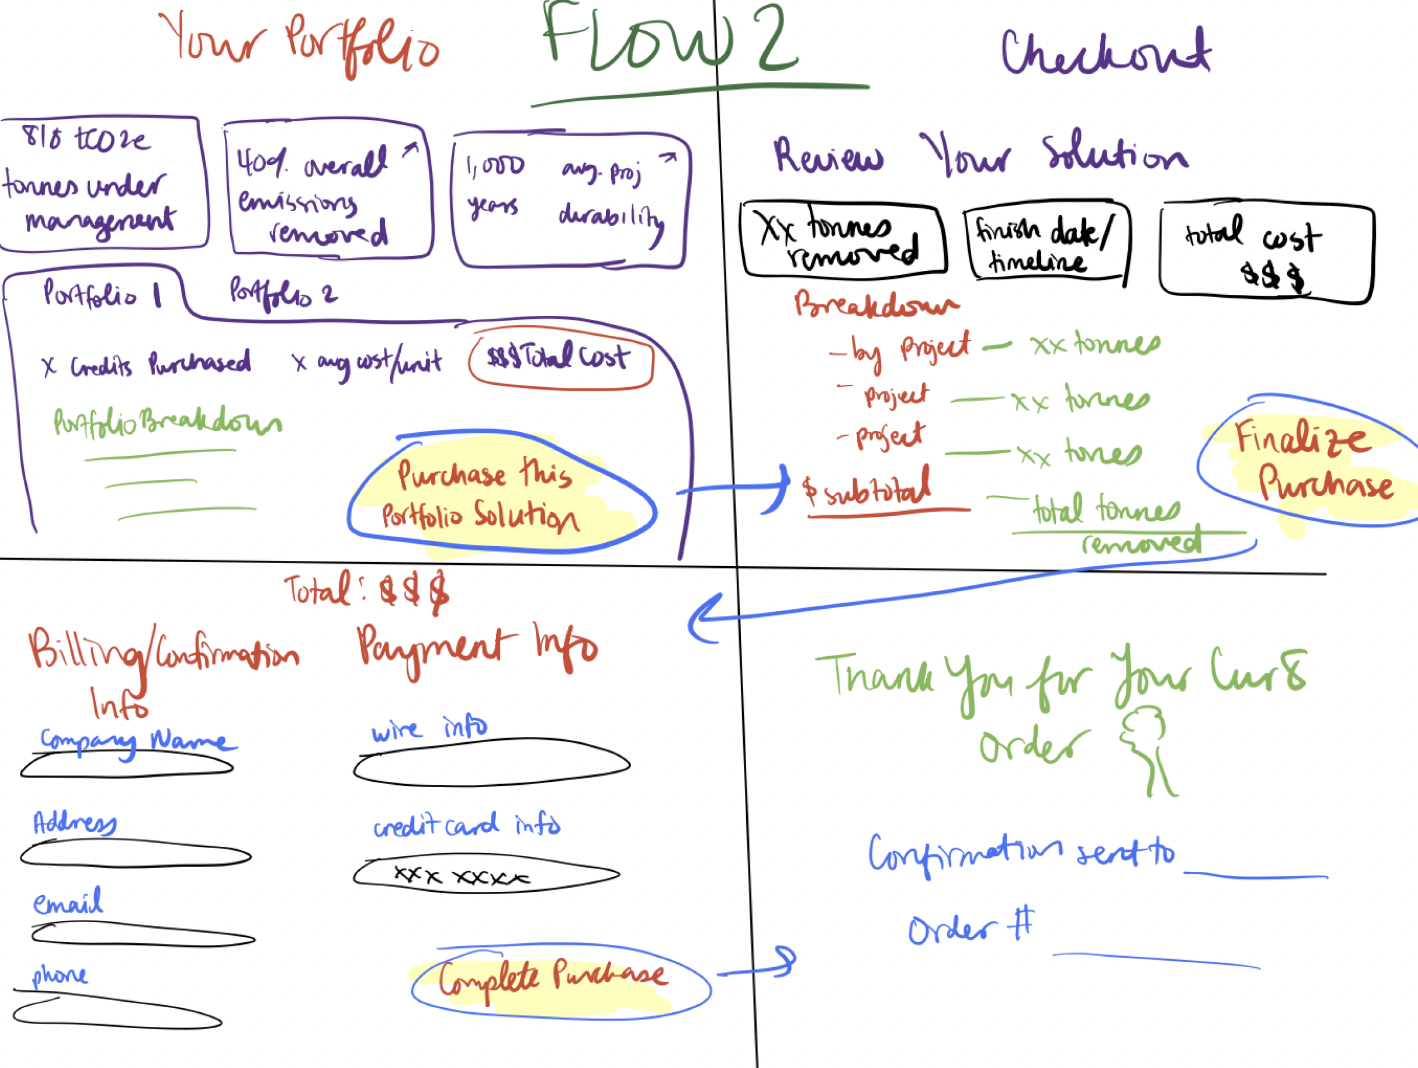 Your Portfolio
FLOW 2
810 tCO2e
tonnes under
management
40% overall
emissions
removed
1,000 avg. proj
years durability
Portfolio 1
Portfolio 2
x Credits Purchased
x avg cost/unit
$$$ Total Cost
Portfolio Breakdown
Purchase this
Portfolio Solution
Checkout
Review Your Solution
Xx tonnes
removed
finish date/
timeline
total cost
$$$
Breakdown
- by project — xx tonnes
- project — xx tonnes
- project — xx tonnes
$ subtotal — total tonnes
removed
Finalize
Purchase
Total: $$$
Billing/Confirmation
Info
Company Name
Address
email
phone
Payment Info
wire info
credit card info
xxx xxxx
Complete Purchase
Thank You for Your Cur8
order
Confirmation sent to
Order #